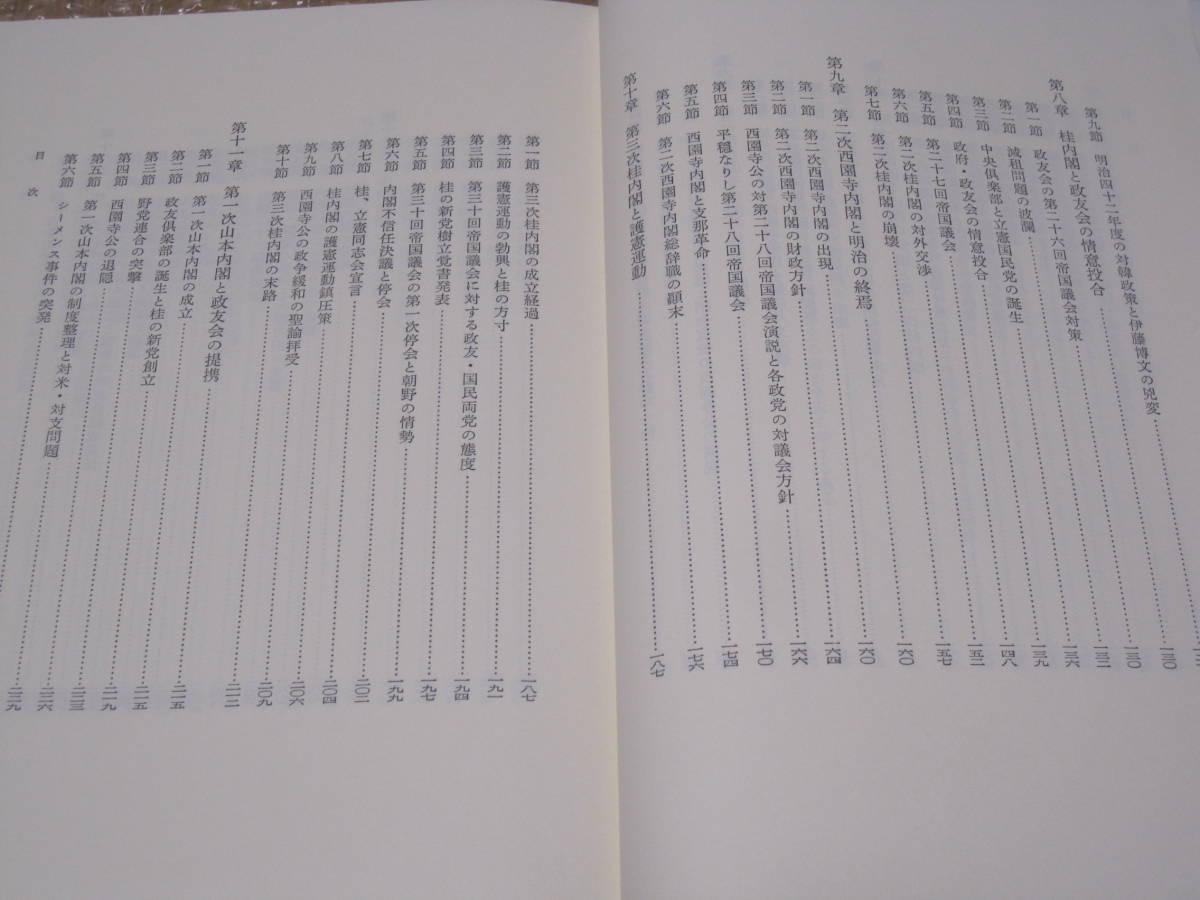 第九節 明治四十二年度の対韓政策と伊藤博文の兇変
第八章 桂内閣と政友会の情意投合…………一三〇
第一節 政友会の第二十六回帝国議会対策…………一三〇
第二節 減租問題の波瀾…………一三二
第三節 中央倶楽部と立憲国民党の誕生…………一三六
第四節 政府・政友会の情意投合…………一三九
第五節 第二十七回帝国議会…………一四八
第六節 第二次桂内閣の対外交渉…………一五二
第七節 第二次桂内閣の崩壊…………一五七
第九章 第二次西園寺内閣と明治の終焉…………一六〇
第一節 第二次西園寺内閣の出現…………一六〇
第二節 第二次西園寺内閣の財政方針…………一六四
第三節 西園寺公の対第二十八回帝国議会演説と各政党の対議会方針…………一六六
第四節 平穏なりし第二十八回帝国議会…………一七〇
第五節 西園寺内閣と支那革命…………一七四
第六節 第二次西園寺内閣総辞職の顚末…………一七六
第十章 第三次桂内閣と護憲運動…………一八七
第一節 第三次桂内閣の成立経過…………一八七
第二節 護憲運動の勃興と桂の方寸…………一九一
第三節 第三十回帝国議会に対する政友・国民両党の態度…………一九四
第四節 桂の新党樹立覚書発表…………一九七
第五節 第三十回帝国議会の第一次停会と朝野の情勢…………一九九
第六節 内閣不信任決議と停会…………二〇二
第七節 桂、立憲同志会宣言…………二〇四
第八節 桂内閣の護憲運動鎮圧策…………二〇六
第九節 西園寺公の政争緩和の聖諭拝受…………二〇九
第十節 第三次桂内閣の末路…………二一二
第十一章 第一次山本内閣と政友会の提携…………二一五
第一節 第一次山本内閣の成立…………二一五
第二節 政友倶楽部の誕生と桂の新党創立…………二一九
第三節 野党連合の突撃…………二二三
第四節 西園寺公の退隠…………二二六
第五節 第一次山本内閣の制度整理と対米・対支問題…………二二九
第六節 シーメンス事件の突発
目次